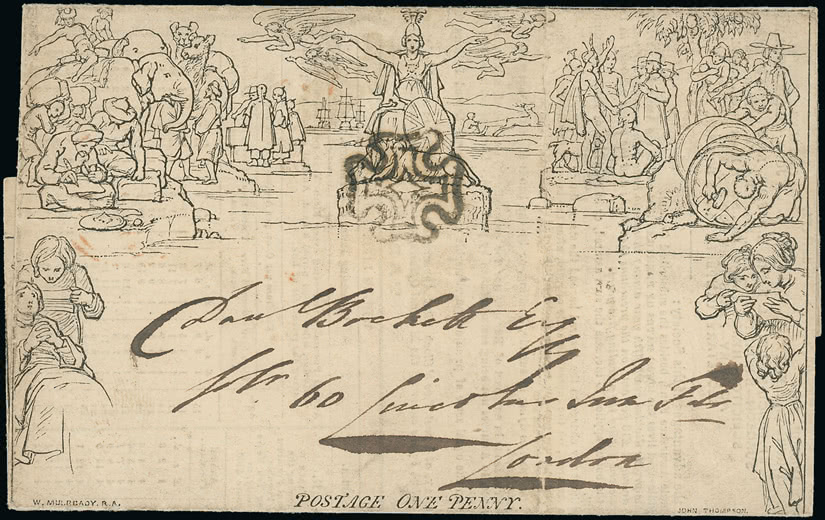 Danl Beckett Esq
No. 60 Lincolns Inn Fds
London
POSTAGE ONE PENNY.
W. MULREADY. R.A.
JOHN THOMPSON.